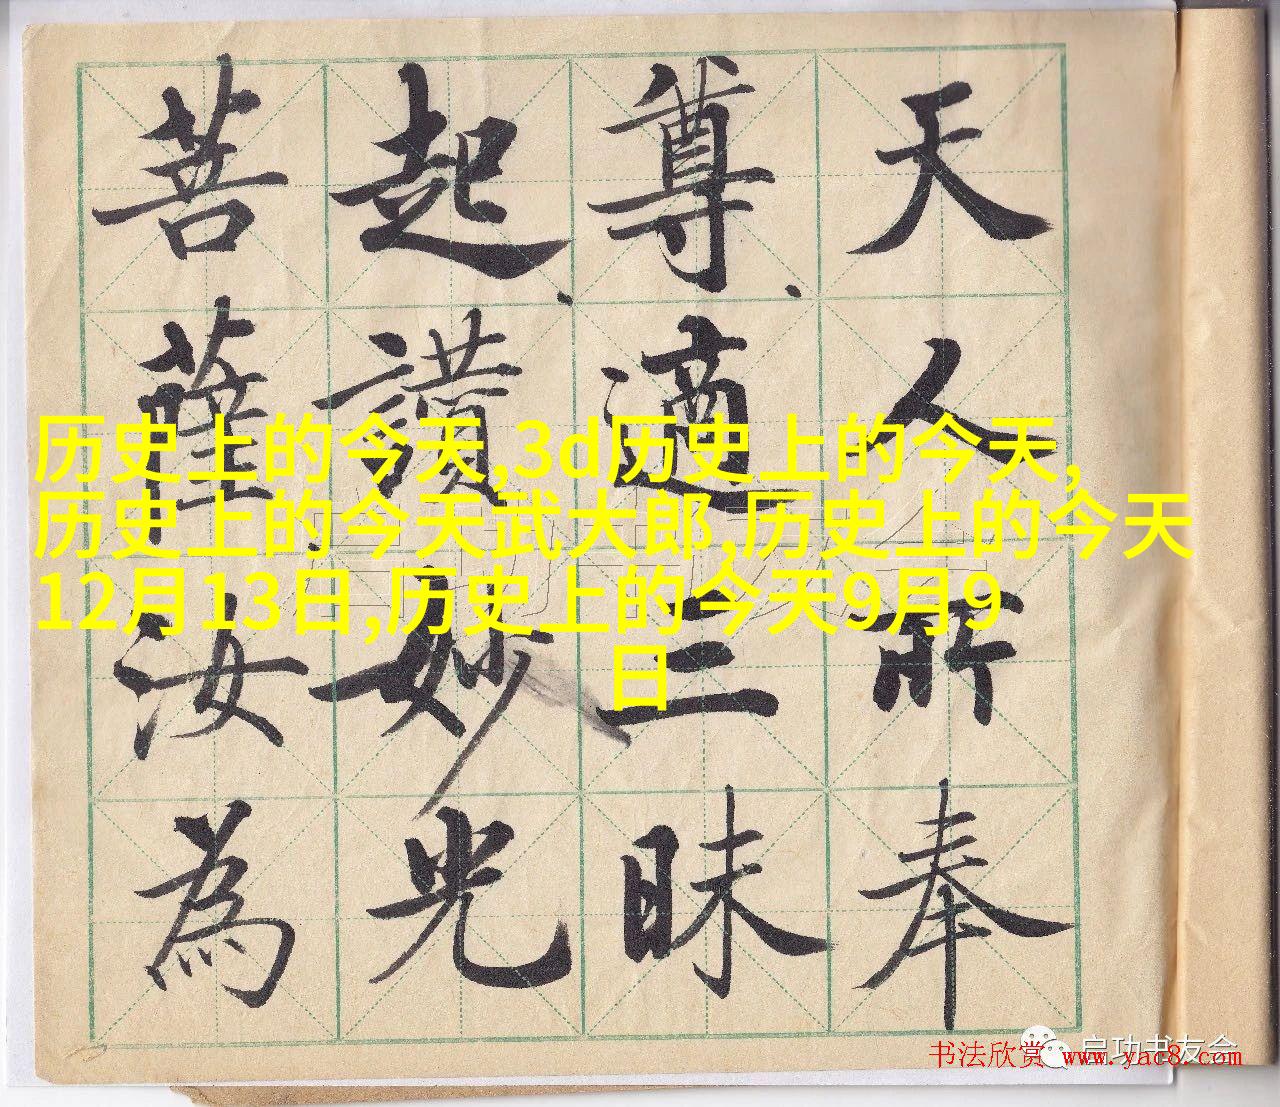 天人所奉
尊適三昧
起讚妙光
菩薩汝為
历史上的今天,3d历史上的今天,
历史上的今天武大郎,历史上的今天
12月13日,历史上的今天9月9
日
启功书友会
书法欣赏 www.yac8.com